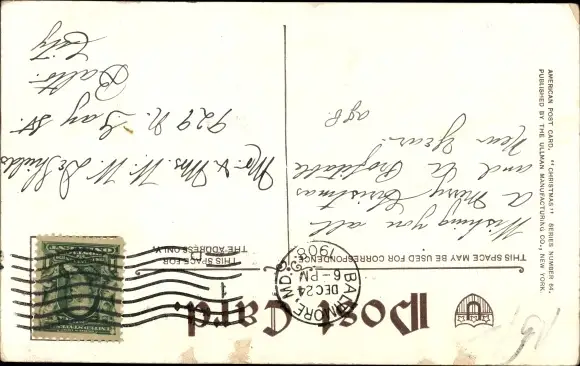 Post Card.
THIS SPACE MAY BE USED FOR CORRESPONDENCE
THIS SPACE FOR
THE ADDRESS ONLY.
BALTIMORE, MD.
DEC 24
6-PM
1908
1
Wishing you all
a Merry Christmas
and a Profitable
New Year.
Mr & Mrs W. W.
929 N. Gay St.
Balto.
City
AMERICAN POST CARD. "CHRISTMAS" SERIES NUMBER 64.
PUBLISHED BY THE ULLMAN MANUFACTURING CO., NEW YORK.